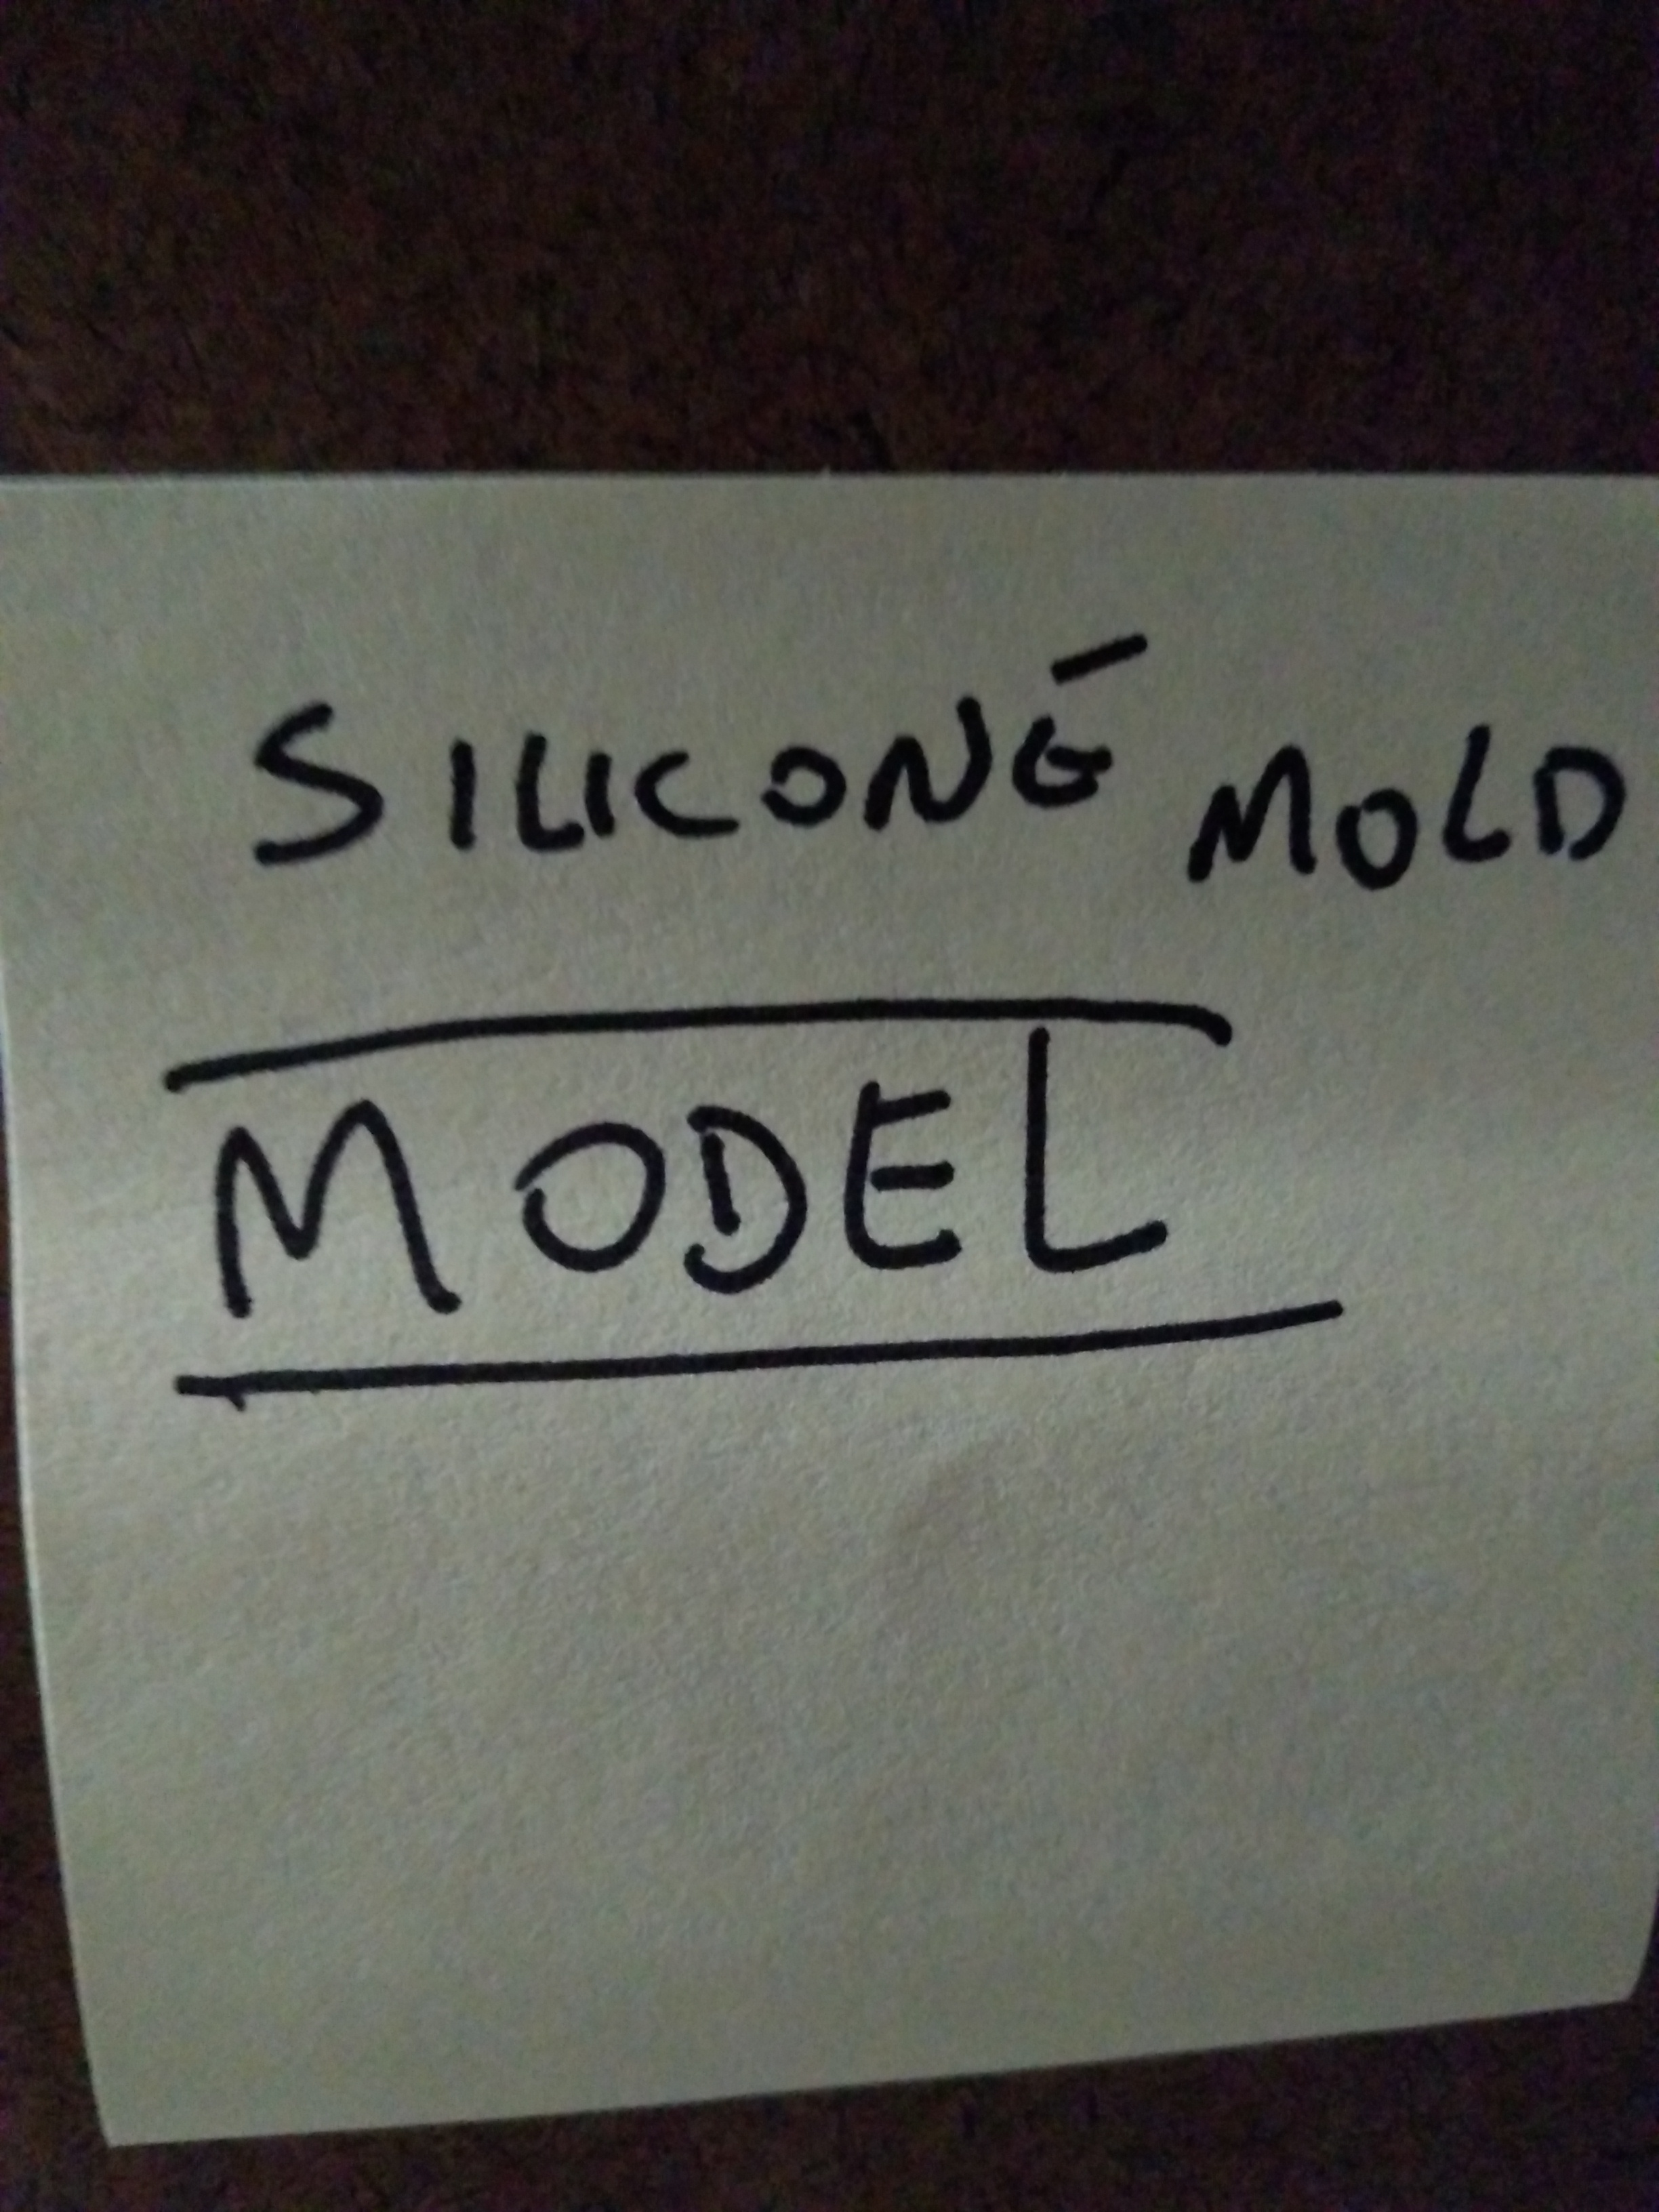 SILICONE MOLD
MODEL